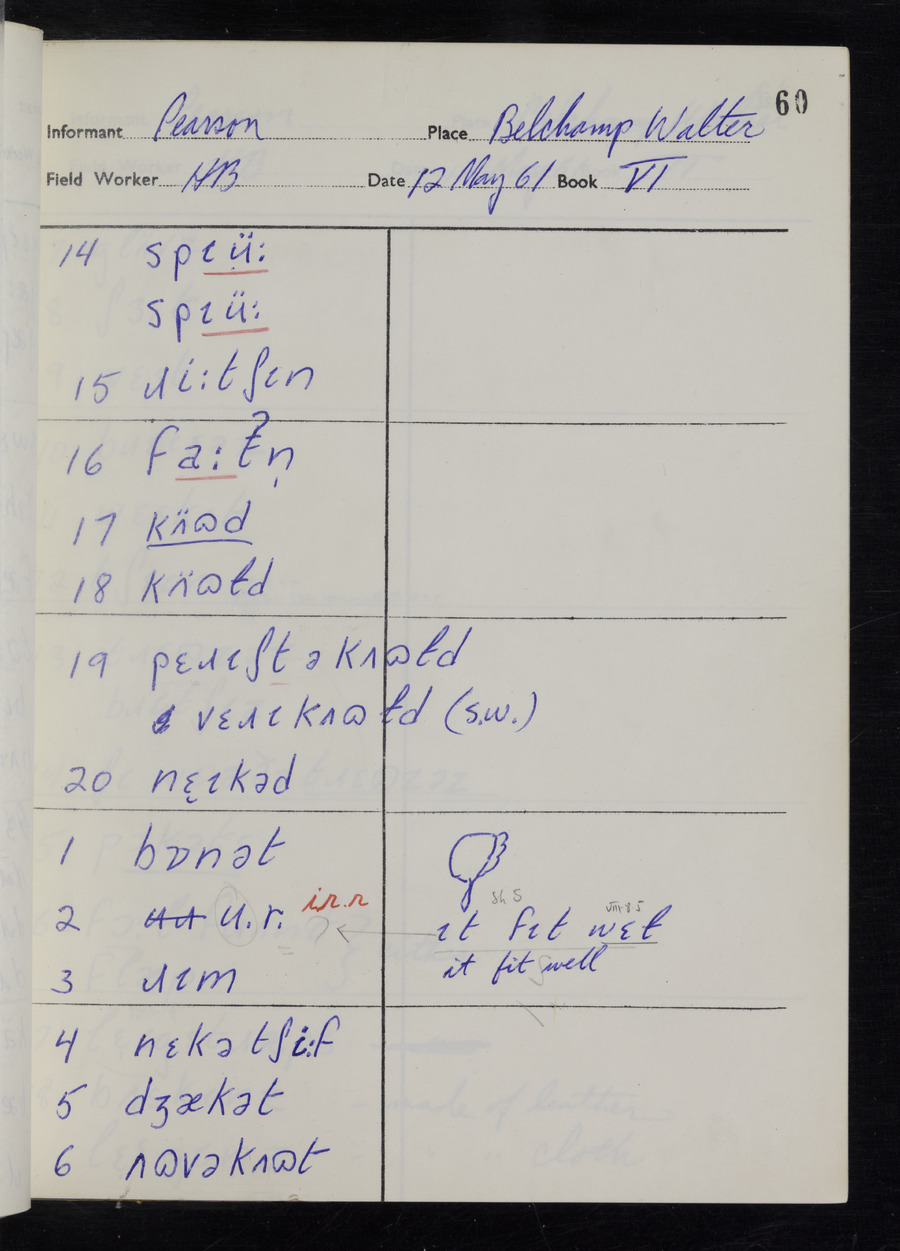 60
Informant Pearson Place Belchamp Walter
Field Worker HB Date 12 May 61 Book VI
14 spɪü:
spɪü:
15 ɹi:tʃɪn
16 fa:tʔn̩
17 kn̈ɷd
18 kʌ̈ɷɫd
19 pɛɹɪʃt ə kʌɷɫd
vɛɹɪ kʌɷɫd (s.w.)
20 nɛ̨ɪkəd
1 bɒnət
2 u.r. i.r.r
Sh S VIII 8 5
ɪt fɪt wɛɫ
it fit well
3 ɹɪm
4 nɛkətʃi:f
5 dʒækət
6 ʌɷvəkʌɷt